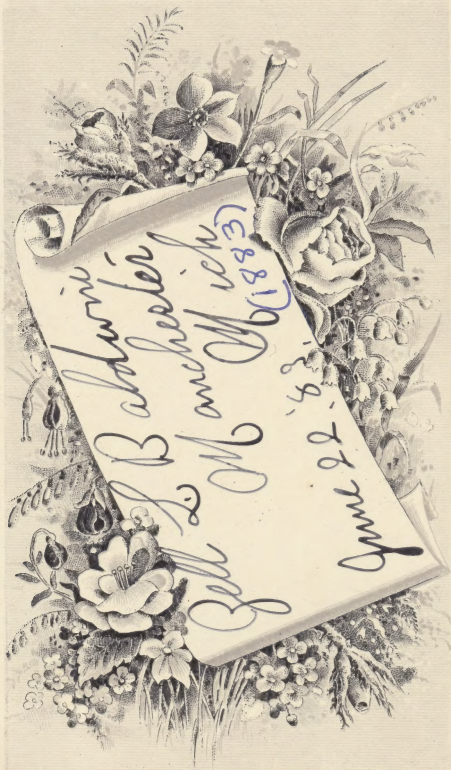 Zell L Baldwin
Manchester
Mich
(1883)
June 22. '83.